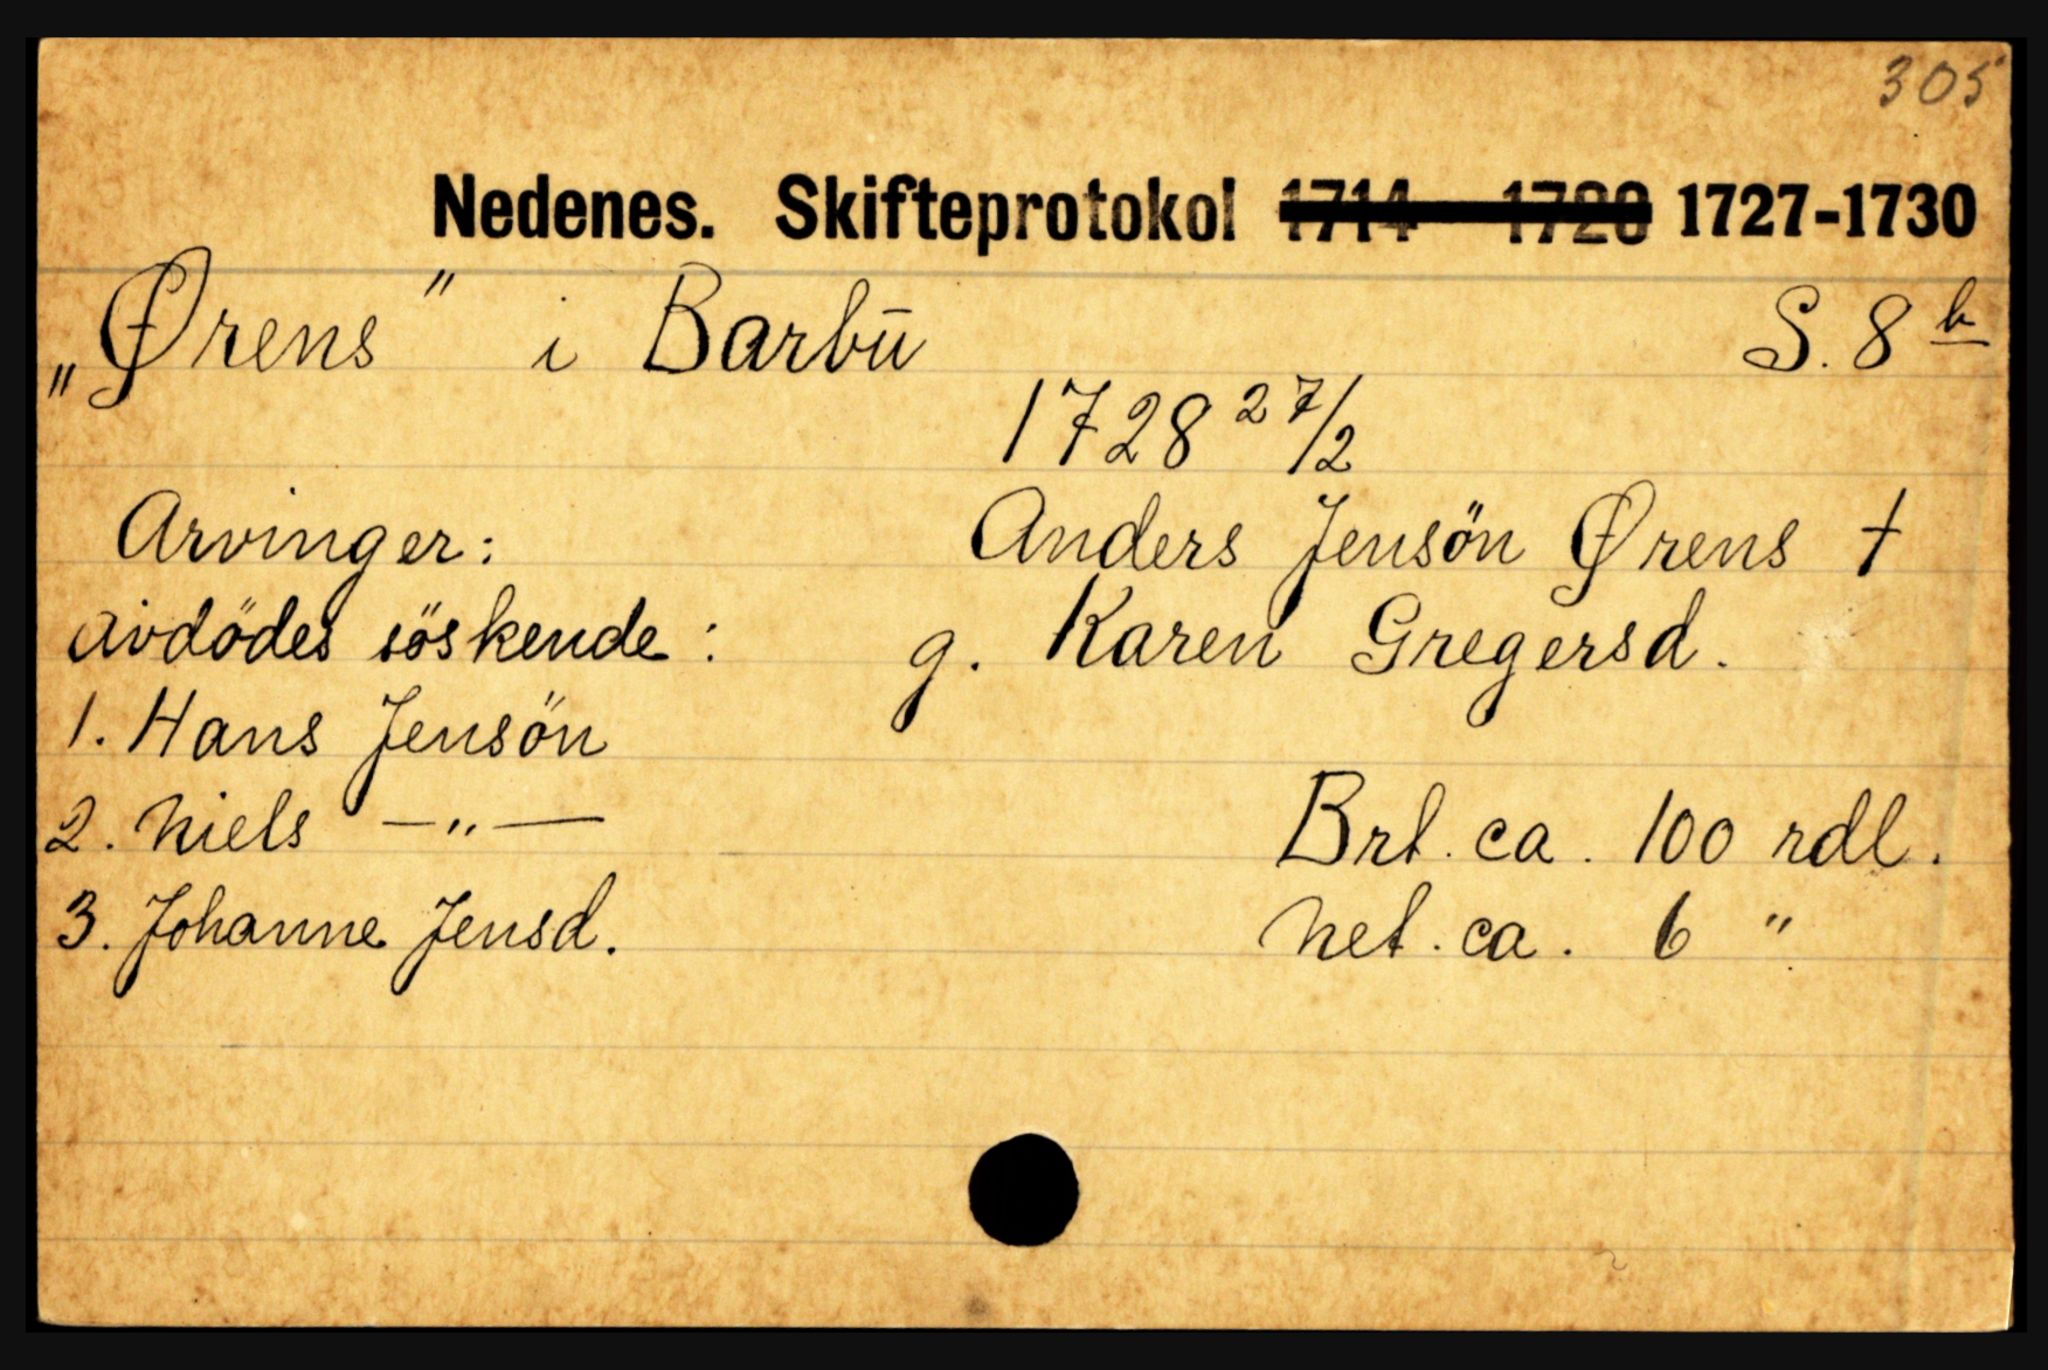 305
Nedenes. Skifteprotokol 1714 - 1728 1727-1730
„Ørens" i Barbū S. 8 b
1728 27/2
Arvinger: Anders Jensön Ørens †
avdödes söskende: g. Karen Gregersd.
1. Hans Jensön
2. Niels —"— Brt. ca. 100 rdl.
3. Johanne Jensd. Net. ca. 6 "